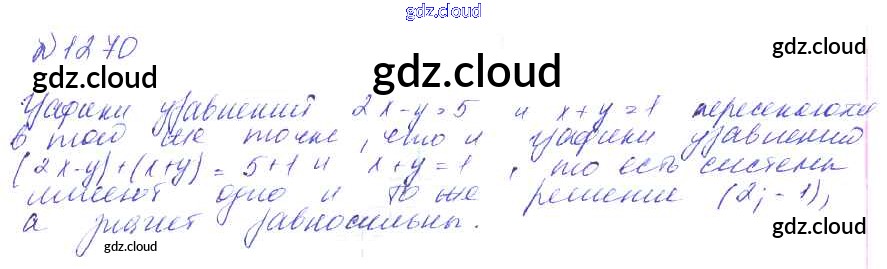 gdz.cloud
№1270
gdz.cloud
gdz.cloud
gdz.cloud
Графики уравнений 2x-y=5 и x+y=1 пересекаются
в той же точке, что и графики уравнений
(2x-y)+(x+y)=5+1 и x+y=1, то есть системы
имеют одно и то же решение (2;-1),
а значит равносильны.
gdz.cloud
gdz.cloud
gdz.cloud